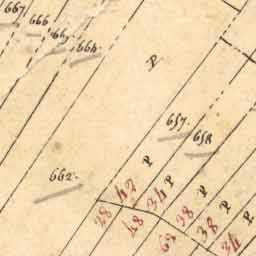 667
666
664
P
657
658
P
662
P
P
42
34
28
48
38
38
34
P
P